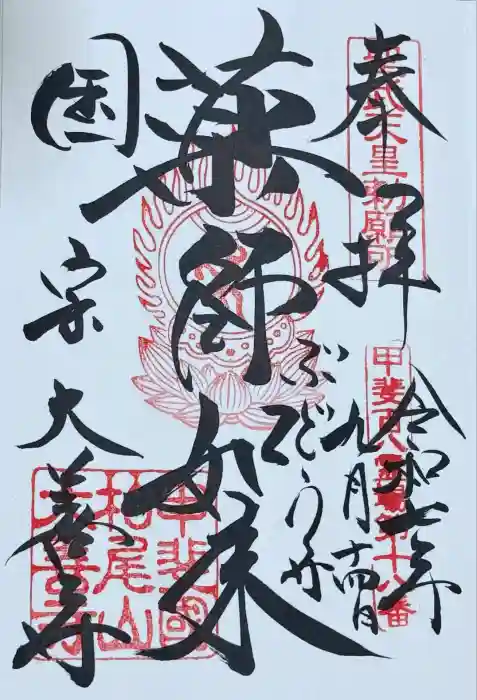 奉拝
聖武天皇勅願所
甲斐百八霊場第十八番
令和七年
九月十四日
ぶどう寺
薬師如来
国宝 大善寺
甲斐國
柏尾山
大善寺